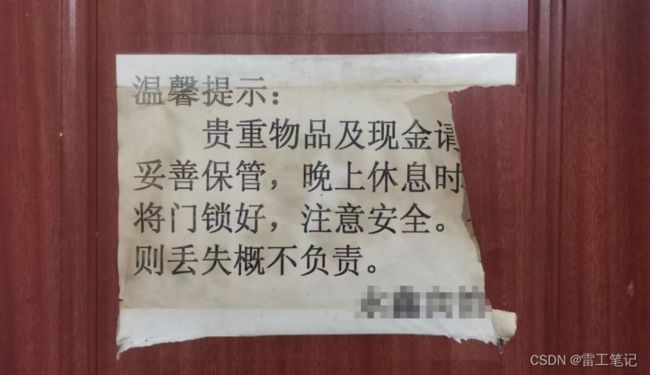 温馨提示：
贵重物品及现金请
妥善保管，晚上休息时
将门锁好，注意安全。
则丢失概不负责。
CSDN @雷工笔记